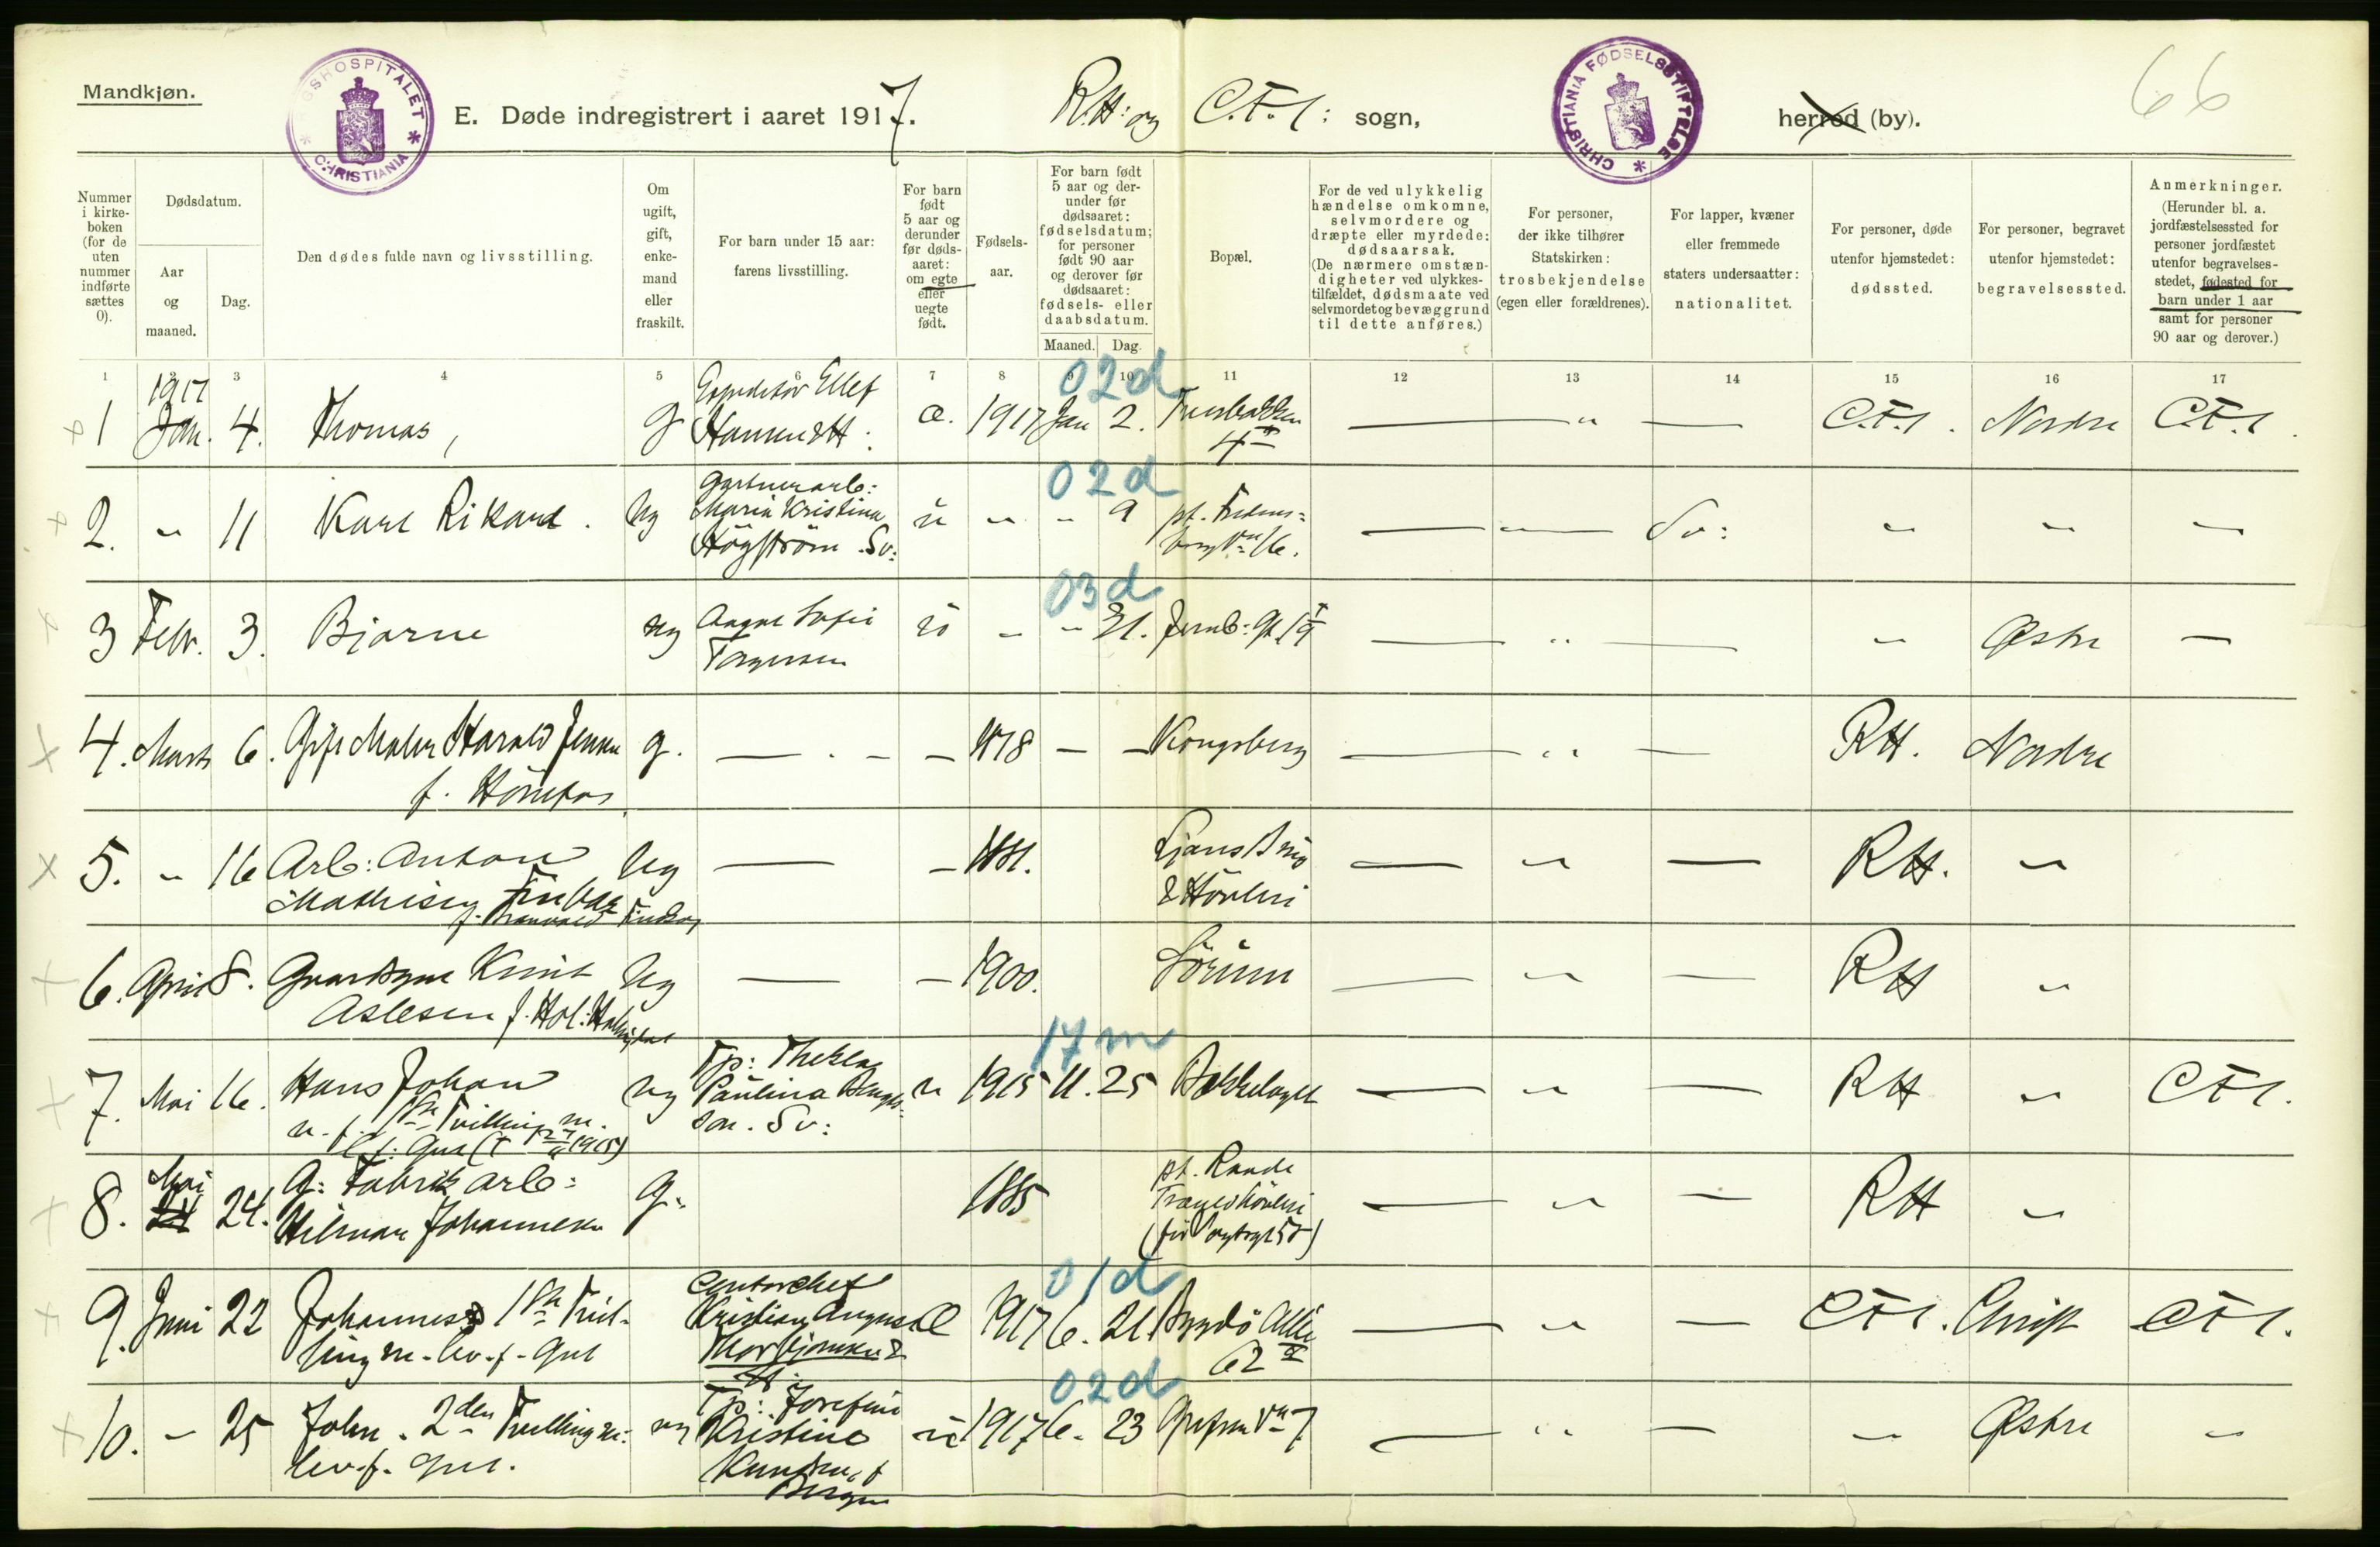 Mandkjøn.
RIGSHOSPITALET * CHRISTIANIA *
E. Døde indregistrert i aaret 1917.
R.H: og C.F.S: sogn,
CHRISTIANIA FØDSELSSTIFTELSE *
herred (by).
66
Nummer i kirke-boken (for de uten nummer indførte sættes 0).
Dødsdatum.
Aar og maaned.
Dag.
Den dødes fulde navn og livsstilling.
Om ugift, gift, enke-mand eller fraskilt.
For barn under 15 aar: farens livsstilling.
For barn født 5 aar og derunder før døds-aaret: om egte eller uegte født.
Fødsels-aar.
For barn født 5 aar og der-under før dødsaaret: fødselsdatum; for personer født 90 aar og derover før dødsaaret: fødsels- eller daabsdatum.
Maaned. Dag.
Bopæl.
For de ved ulykkelig hændelse omkomne, selvmordere og dræpte eller myrdede: dødsaarsak. (De nærmere omstæn-digheter ved ulykkes-tilfældet, dødsmaate ved selvmordet og bevæggrund til dette anføres.)
For personer, der ikke tilhører Statskirken: trosbekjendelse (egen eller forældrenes).
For lapper, kvæner eller fremmede staters undersaatter: nationalitet.
For personer, døde utenfor hjemstedet: dødssted.
For personer, begravet utenfor hjemstedet: begravelsessted.
Anmerkninger. (Herunder bl. a. jordfæstelsessted for personer jordfæstet utenfor begravelses-stedet, fødested for barn under 1 aar samt for personer 90 aar og derover.)
1 2 3 4 5 6 7 8 9 10 11 12 13 14 15 16 17
02d
1917
1 Jan. 4. Thomas, g Expeditør Ellef Hansen & H: æ. 1917 Jan 2. 4 — " — C.F.S. Nordre C.F.S.
02d
2. " 11 Karl Rikard. ug Gartnerarb: Maria Kristina Högström. Sv: u " " 9 16. — — Sv: " " "
03d
3 Febr. 3. Bjarne ug Aagot Sofie Torgersen u - " 31. Jernb: gt 19 — " — " Østre —
4. Marts 6. Gift Maler Harald Jensen g. — - - — 1878 — — Kongsberg — " — RH. Nordre
f. Hönefos,
5. " 16 Arb: Anton Mathisen ug — — 1881. — " — RH. "
6. April 8. Knut Aslesen ug — — 1900. Sörum — " — RH "
17m
7. Mai 16. Hans Johan ug Tp: Thekla Paulina Sv: u 1915 11. 25 Bækkelaget — " — RH " CFS.
8. Mai 24. G: Fabrik arb: Hilmar Johannesen g. 1885 pt. — " — RH "
01d
9. Juni 22 Johannes 1ste Tvilling m. lev. f. Gut Contorchef Kristian August Thorbjörnsen & H: Æ 1917 6. 21. Bygdö Allé 62 — " — CFS. Christ CFS.
02d
10. - 25 John. 2den Tvilling m: lev. f. gut. ug Tp: Josefine Kristine Knudsen, f Bergen u 1917 6. 23 Grefsen Vn 7 — " — " Østre "